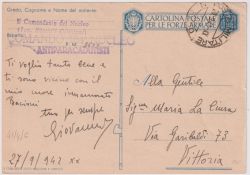 Grado, Cognome e Nome del mittente
CARTOLINA POSTALE
PER LE FORZE ARMATE
Il Comandante del Nucleo
ANTIPARACADUTISTI
Ti voglio tanto bene e
ti sono vicino con il
mio cuore innamorato
Bacioni
tuo per sempre
Giovanni
27/9/942 XX
Alla Gentile
Sig.na Maria La Ciura
Via Garibaldi 73
Vittoria